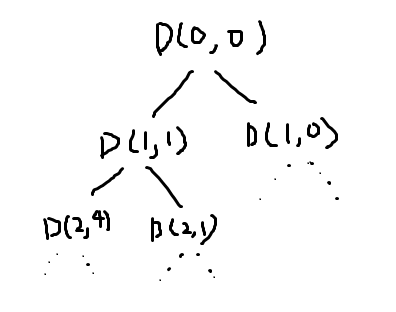 D(0,0)
D(1,1) D(1,0)
D(2,4) D(2,1)